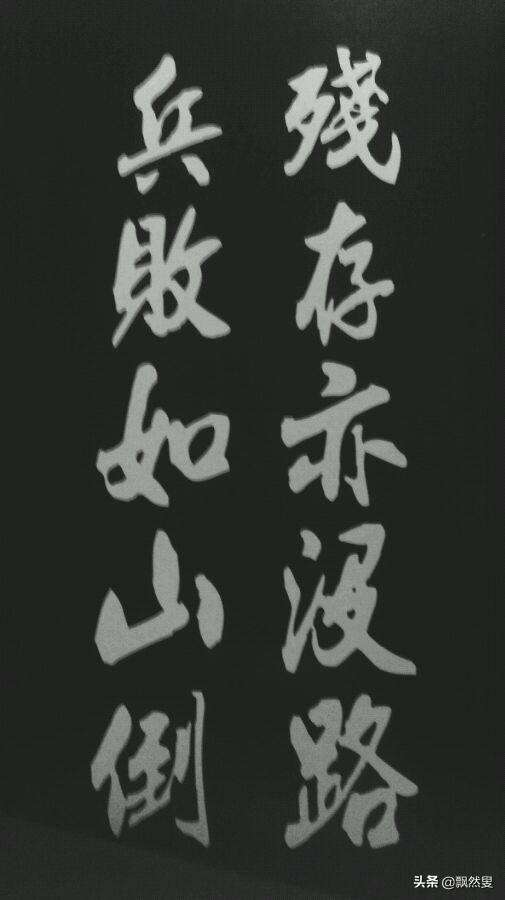 殘存亦沒路
兵敗如山倒
头条 @飘然叟